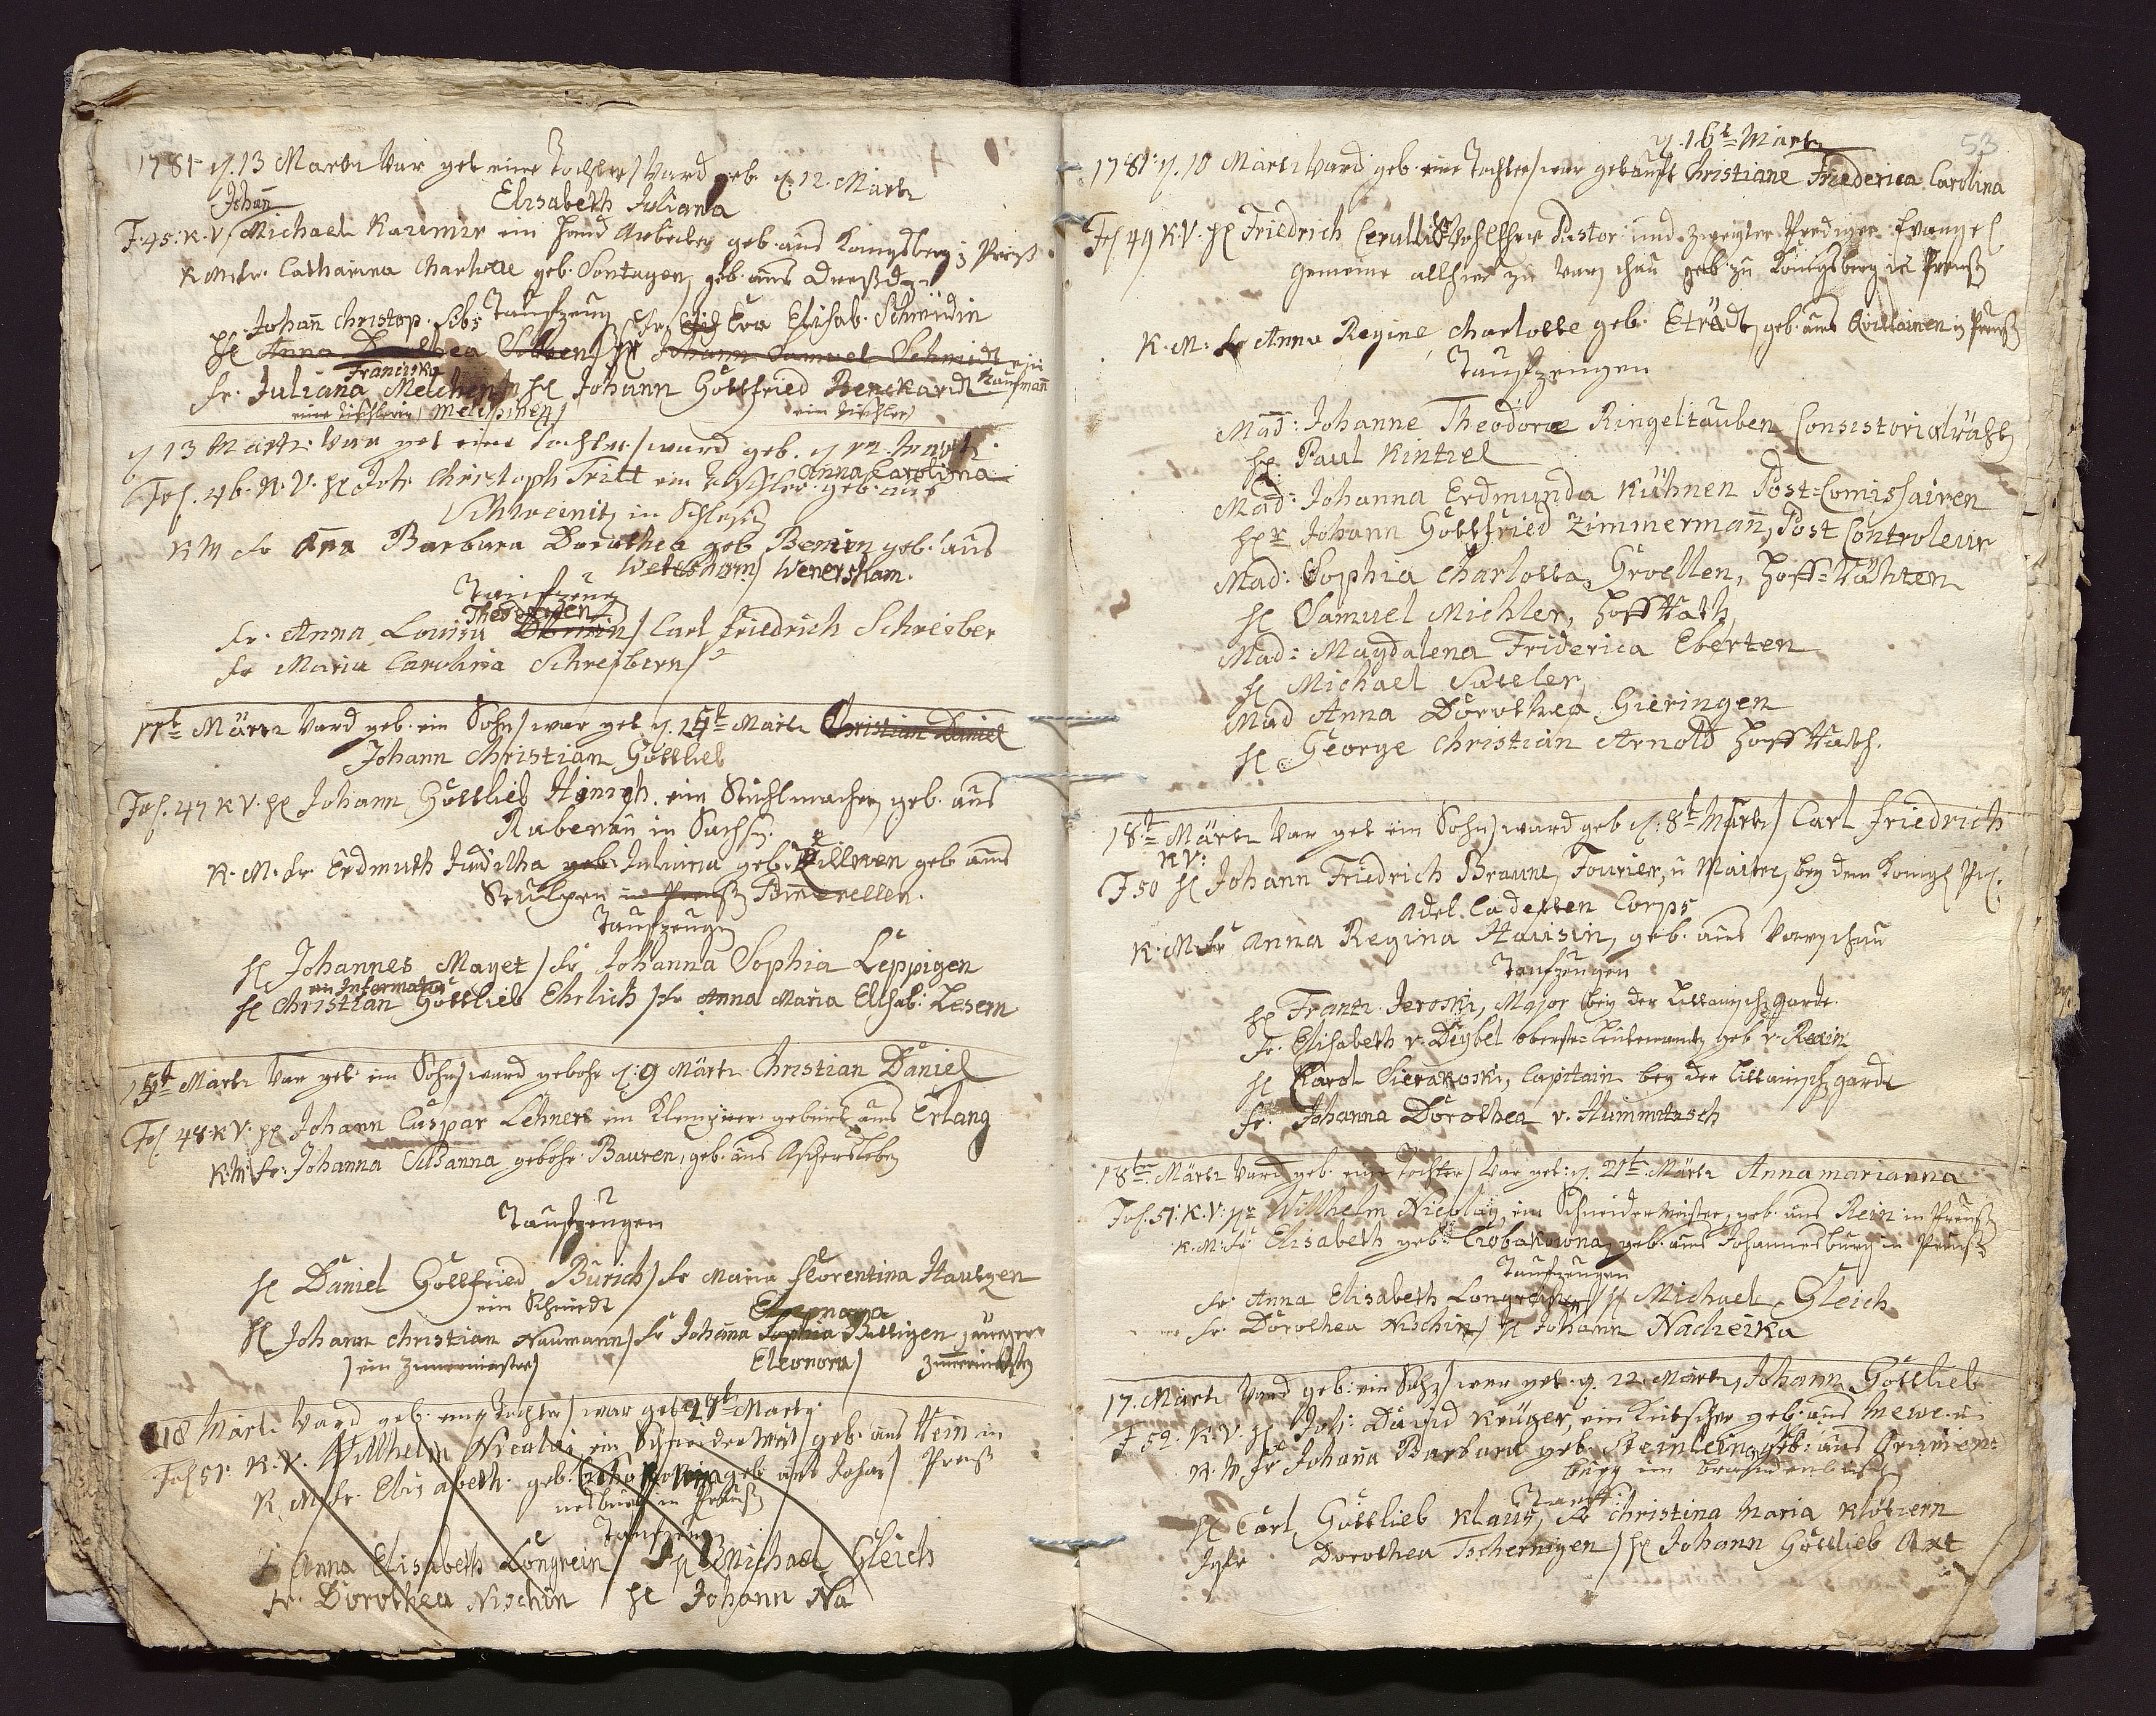 1781 d. 13 Martz War get eine Tochter / Ward geb. d. 12. Martz
Elisabeth Juliana
Johañ
F. 45: K. V / Michael Kazimir ein Hand Arbeiter geb. aus Königsberg in Preuß
K M: Fr. Catharina Charlotte geb. Sontagen, geb. aus
Taufzeug
H Johañ Christop. Sibs Fr. Eva Elisab. Schmidin
H Anna Dorothea Sibsen / H Johann Samuel Schmidt ein Kaufmañ
Franciska
Fr. Juliana Melchen H Johann Gottfried Benckardt
eine Tischlerin / Melchinen / ein Tischler
d 13 Martz War get eine Tochter / ward geb. d 12. Martz
Anna Carolina
Fol. 46. K. V. H Joh Christoph Tritt ein Tischler geb. aus
in Schlesien
K M Fr Aña Barbara Dorothea geb Bemin geb. aus
Wenersham.
Taufzeug
Fr. Anna Louisa / Carl Friedrich Schreiber
Fr Maria Carolina Schreibern /
11t Märtz Ward geb. ein Sohn / war get d. 15t Martz Christian Daniel
Johann Christian Gottlieb
Fol. 47 K V. H Johann Gottlieb Hönigh. ein Stuhlmacher geb. aus
Rabenau in Sachs.
K. M. Fr Erdmuth Juditha geb. Juliana geb. geb aus
Stulpen in Preuß
Taufzeugen
H Johannes Mayet / Fr Johanna Sophia Leppigen
ein Informator
H Christian Gottlieb Ehrlich / Fr Anna Maria Elisab. Lesern
15t Martz War get ein Sohn / ward gebohr d: 9 Märtz Christian Daniel
Fol. 48. K V. H Johann Caspar Lehnert ein Klempner gebürt aus Erlang
K. M. Fr: Johanna Susanna gebohr. Bauren, geb. aus Aschersleben
Taufzeugen
H Daniel Gottfried Burich / Fr Maria Florentina Hautzen
ein Schmidt
H Johann Christian Naumann / Fr Johana Sophia Billigen
/ ein Zimermeister / Eleonora /
18 Märtz Ward geb. eine Tochter / war get 21t Martz
Fol 51. K. V. Willhelm Nicolai ein Schneider Meist / geb. aus Rein in
K. M. Fr. Elisabeth. geb. geb aus Johan / Preuß
nesburg in Preuß
Taufzeug
Anna Elisabeth Longrein / H Michael Gleich
Fr. Dorothea Nischin H Johann Na
53
d. 16t Martz
1781. d. 10 Martz Ward geb. eine Tochter / war getauft Christiane Friederica Carolina
Fol 49 K. V. H Friedrich Cerulli Pastor und zweyter Prediger Evangel
Gemeine allhier zu Warschau geb. zu Königsberg in Preuß
K. M: Fr Anna Regine Charlotte geb. geb. aus in Preuß
Taufzeugen
Mad: Johanne Theodora Ringeltauben Consistorialräthin
H. Paul Kintzel
Mad: Johanna Erdmunda Kühnen Post-Comissairen
H Johann Gottfried Zimmermañ, Post Controleur
Mad: Sophia Charlotta Groellen, Hoff-Räthten
H Samuel Michler, Hoff Rath
Mad: Magdalena Friderica Eberten
H Michael Satteler,
Mad Anna Dorothea Gieringen
H George Christian Arnold Hoff Rath.
18t Märtz War get ein Sohn / ward geb d: 8t Märtz / Carl Friedrich
K V:
F 50 H Johann Friedrich Braune, Fourier, u Maitre, bey dem Königl Pol.
Adel. Cadetten Corps
K. M. Fr Anna Regina Hausin, geb. aus Warschau
Taufzeugen
H Frantz Jeroski, Major bey der Littauisch Garde.
Fr. Elisabeth v. Deybel oberste Leutenantin geb v. Rexin
H Karol Sierakoski, Capitain bey der Littauisch Garde
Fr. Johanna Dorothea v. Hummitzsch
18ten Märtz Ward geb. eine Tochter / War get: d. 21t Märtz Anna marianna
Fol. 51: K. V: Hr Willhelm Nicolay, ein Schneidermeister, geb. aus Rein in Preuß
K. M: Fr Elisabeth geb. Czobakowna, geb. aus Johannesburg in Preuß
Taufzeugen
Fr. Anna Elisabeth / H Michael Gleich
Fr. Dorothea Nischin / H Johann Nadzeika
17. Märtz Ward geb: ein Sohn / war get. d. 22. Märtz, Johann Gottlieb
F 52. K. V. H Joh: David Krüger, ein Kutscher geb: aus Mewe in
K. M Fr Johaña Barbara geb. Stemlein geb: aus Oranien
burg im Brandenburg
Tauff:
H Carl Gottlieb Klaus, Fr Christina Maria Klötzern
Jgfr Dorothea Tschernigen / H Johann Gottlieb Axt